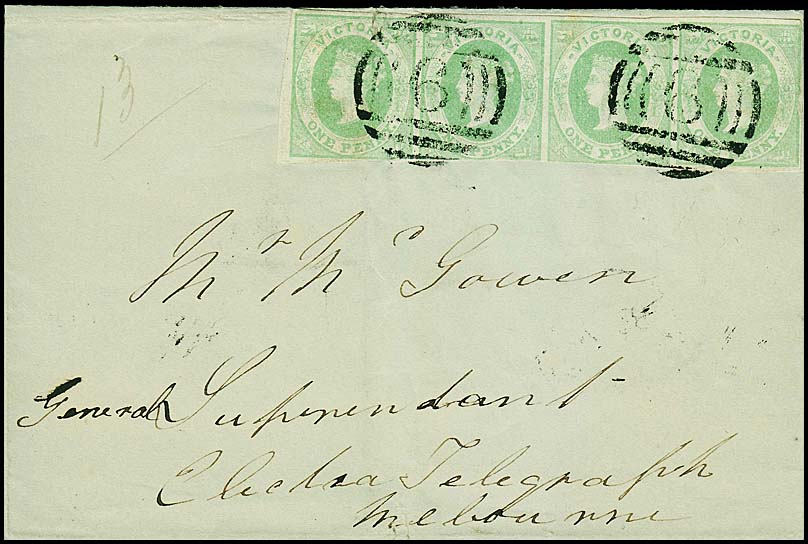 VICTORIA VICTORIA VICTORIA VICTORIA
6 6
ONE PENNY. ONE PENNY. ONE PENNY. ONE PENNY.
13
Mr McGowen
General Superendant
Electra Telegraph
Melbourne